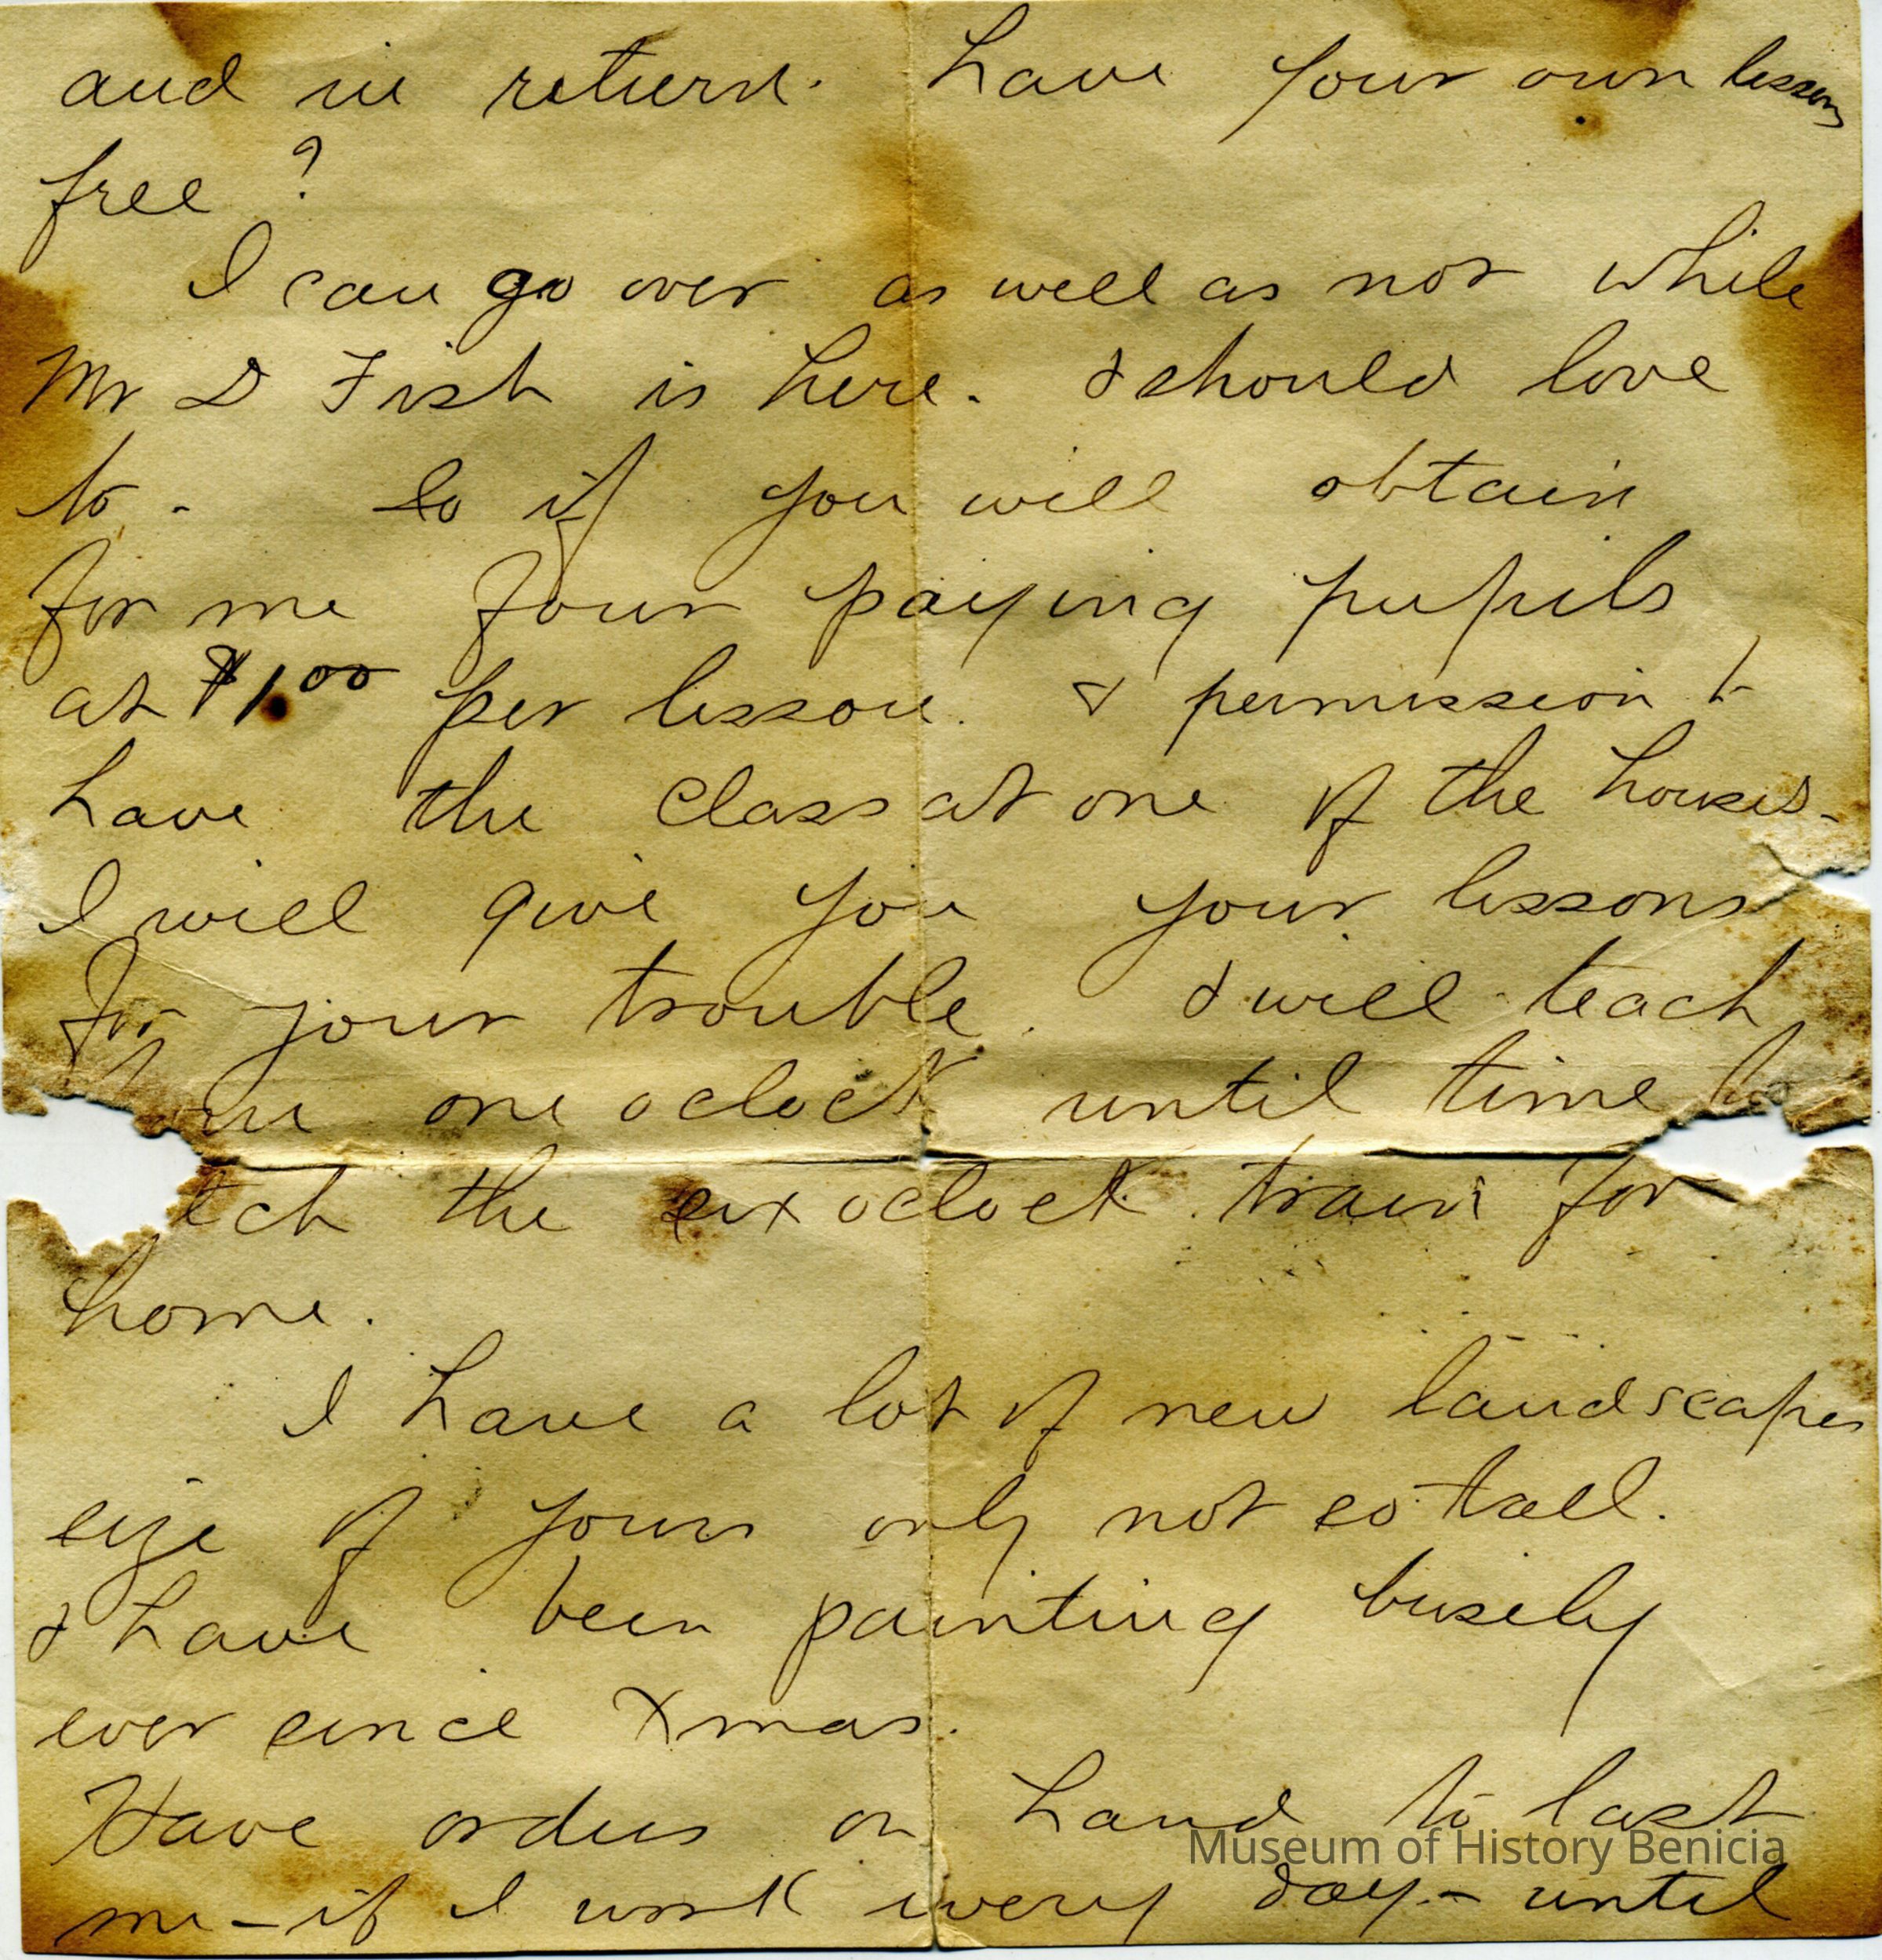 and in return. have your own lessons
free?
I can go over as well as not while
Mr D Fish is here. I should love
to - So if you will obtain
for me four paying pupils
at $1.00 per lesson. & permission to
have the class at one of the houses -
I will give you your lessons
for your trouble. I will teach
one oclock until time to
tch the six oclock train for
home.
I have a lot of new landscapes
size of yours only not so tall.
I have been painting busely
ever since Xmas.
Have orders on hand to last
me - if I work every day - until
Museum of History Benicia